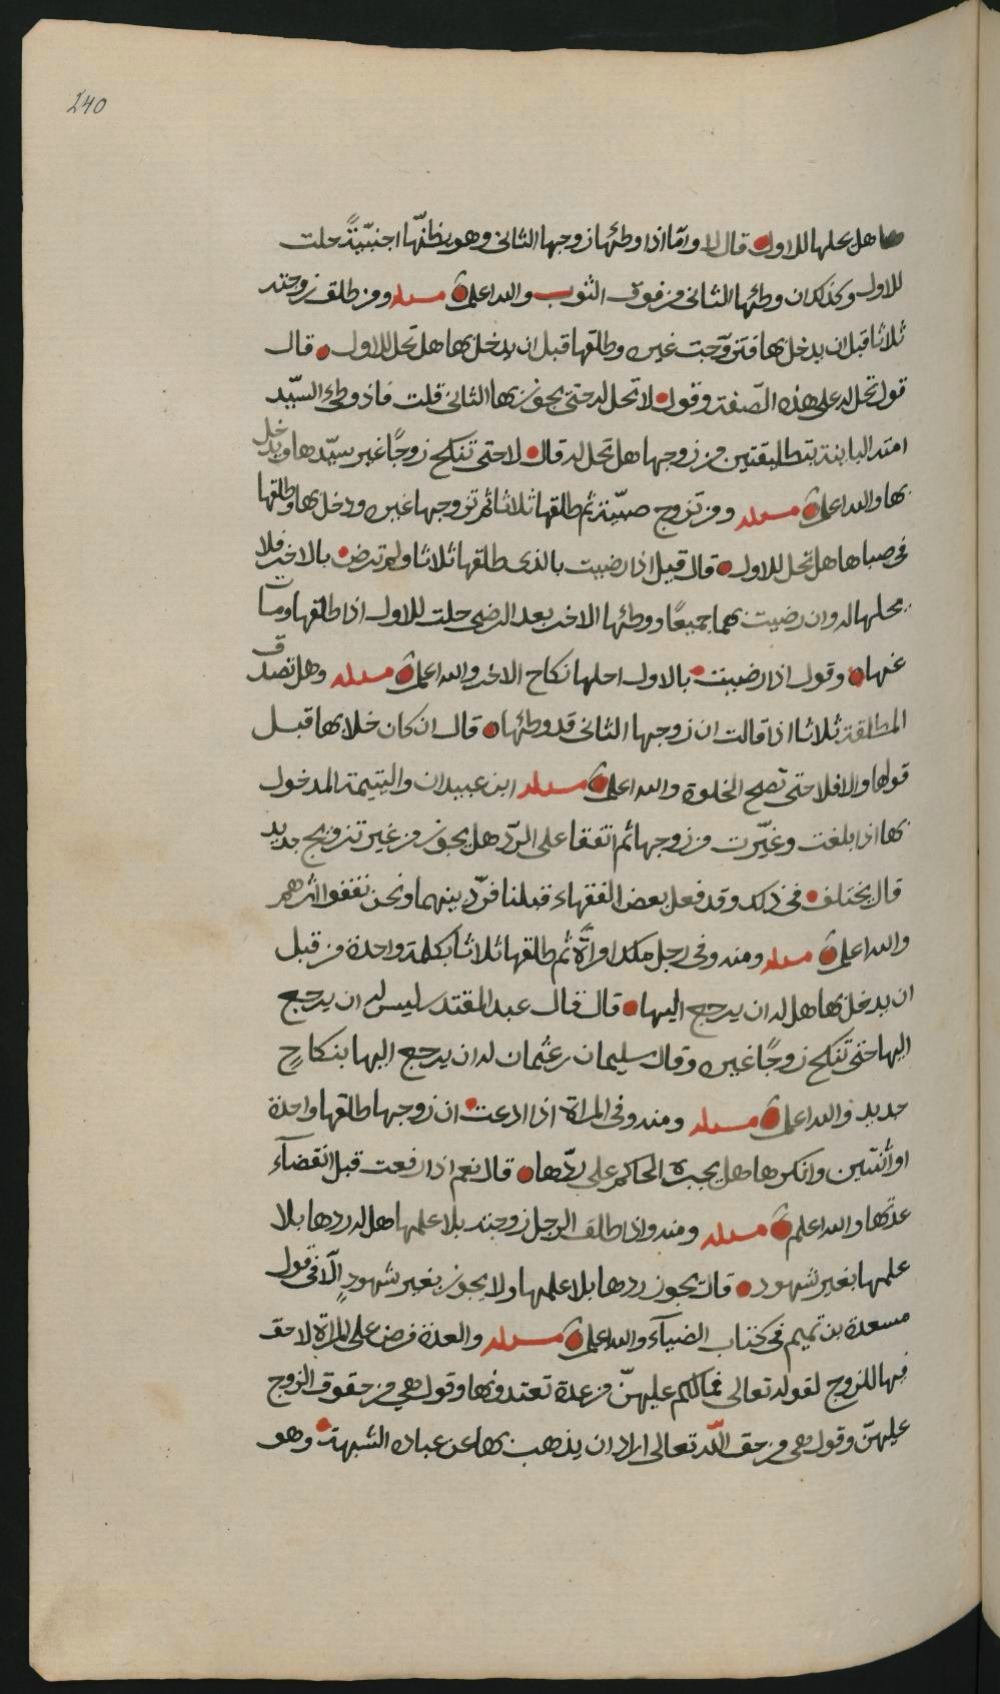 240
هل يحلها للاول قال لا واما اذا وطئها زوجها الثاني وهو يظنّها اجنبيّةً حلت
للاول وكذلك ان وطئها الثاني من فوق الثوب والله اعلم مسئلة ومن طلق زوجته
ثلاثا قبل ان يدخل بها فتزوّجت غيره وطلقها قبل ان يدخل بها هل تحل للاول قال
قول تحل له على هذه الصّفة وقول لا تحل له حتى يجوز بها الثاني قلت فاذ وطئ السّيّد
امته الباينة بتطليقتين من زوجها هل تحل له قال لا حتى تنكح زوجًا غير سيّدها ويدخل
بها والله اعلم مسئلة ومن تزوج صبيّة ثم طلقها ثلاثا ثم تزوجها غيره ودخل بها وطلقها
في صباها هل تحل للاول قال قيل اذا رضيت بالذى طلقها ثلاثا ولم ترض بالاخير فلا
يحلها له وان رضيت بهما جميعًا ووطئها الاخر بعد الرضى حلت للاول اذا طلقها ومات
عنها وقول اذا رضيت بالاول احلها نكاح الاخر والله اعلم مسئلة وهل تصدق
المطلقة ثلاثا اذا قالت ان زوجها الثاني قد وطئها قال ان كان خلا بها قبل
قولها والا فلا حتى تصح الخلوة والله اعلم مسئلة ابن عبيدان واليتيمة المدخول
بها اذا بلغت وغيّرت من زوجها ثم اتفقا على الردّ هل يجوز من غير تزويج جديد
قال يختلف في ذلك وقد فعل بعض الفقهاء قبلنا فردّ بينهما ونحن نقفوا اثرهم
والله اعلم مسئلة ومنه وفى رجل ملك امراةً ثم طلقها ثلاثا بكلمة واحدة من قبل
ان يدخل بها هل له ان يرجع اليها قال قال عبد المقتدر ليس له ان يرجع
اليها حتى تنكح زوجًا غيره وقال سليمان بن عثمان له ان يرجع اليها بنكاحٍ
جديد والله اعلم مسئلة ومنه وفى المراة اذا ادعت ان زوجها طلقها واحدة
او اثنتين وانكرها هل يجبره الحاكم على ردّها قال نعم اذا رفعت قبل انقضآء
عدتها والله اعلم مسئلة ومنه واذا طلق الرجل زوجته بلا علمها هل له ردها بلا
علمها بغير شهود قال يجوز ردها بلا علمها ولا يجوز بغير شهودٍ الّا في قول
مسعدة بن تميم في كتاب الضيآء والله اعلم مسئلة والعدة فرض على المراة لا حق
فيها للزوج لقوله تعالى فما لكم عليهنّ من عدة تعتدونها وقول هي من حقوق الزوج
عليهنّ وقول هي من حق اللّه تعالى اراد ان يذهب بها عن عباده الشبهة وهو